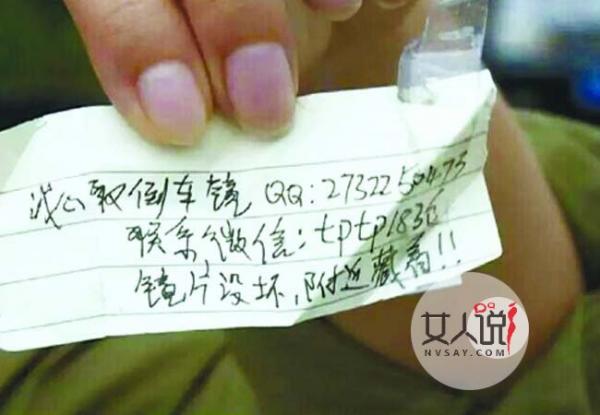 诚心取倒车镜 QQ:2732250473
联系微信:tptp1836
镜片没坏,附近藏着!!
女人说
NVSAY.COM